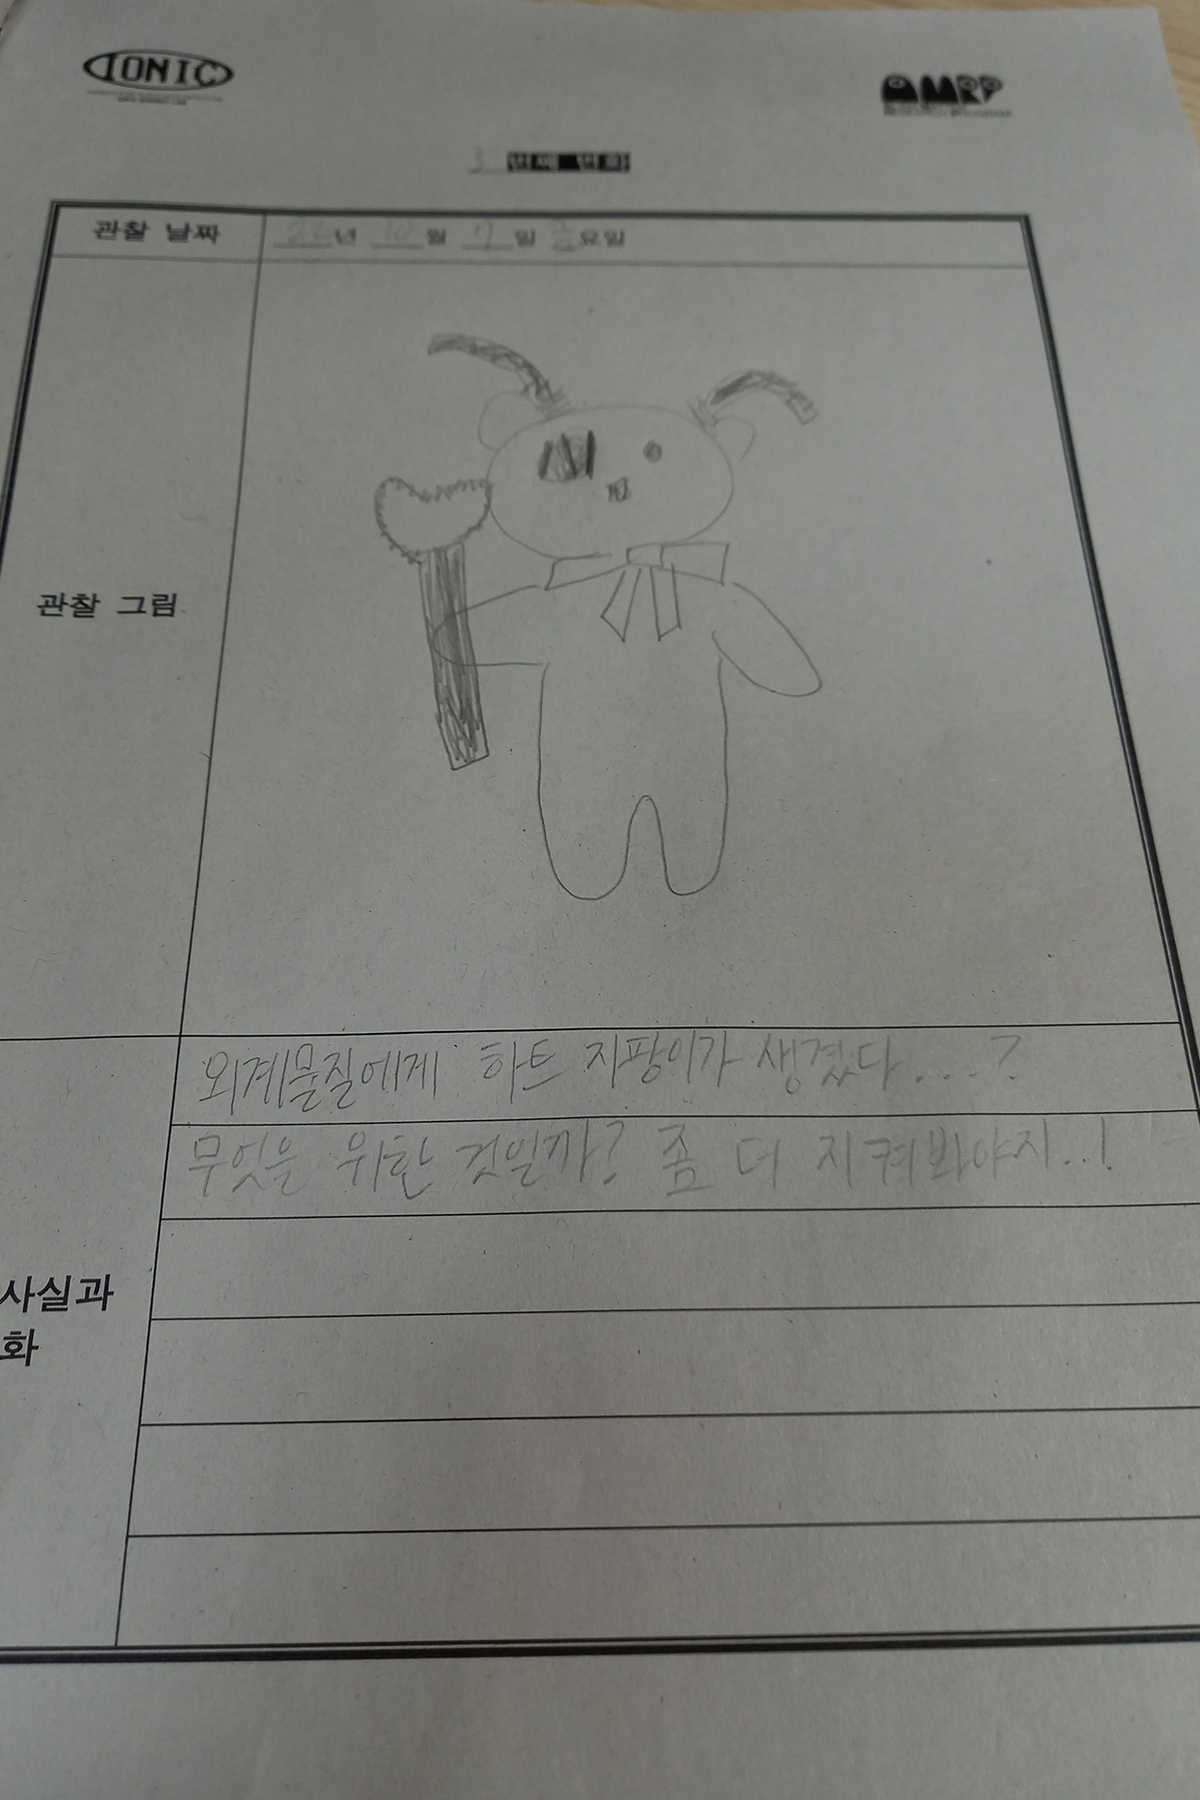 IONIC
AMRP
3 번째 변화
관찰 날짜
22년 10월 7일 금요일
관찰 그림
외계물질에게 하트 지팡이가 생겼다....?
무엇을 위한 것일까? 좀 더 지켜봐야지..!
사실과
화